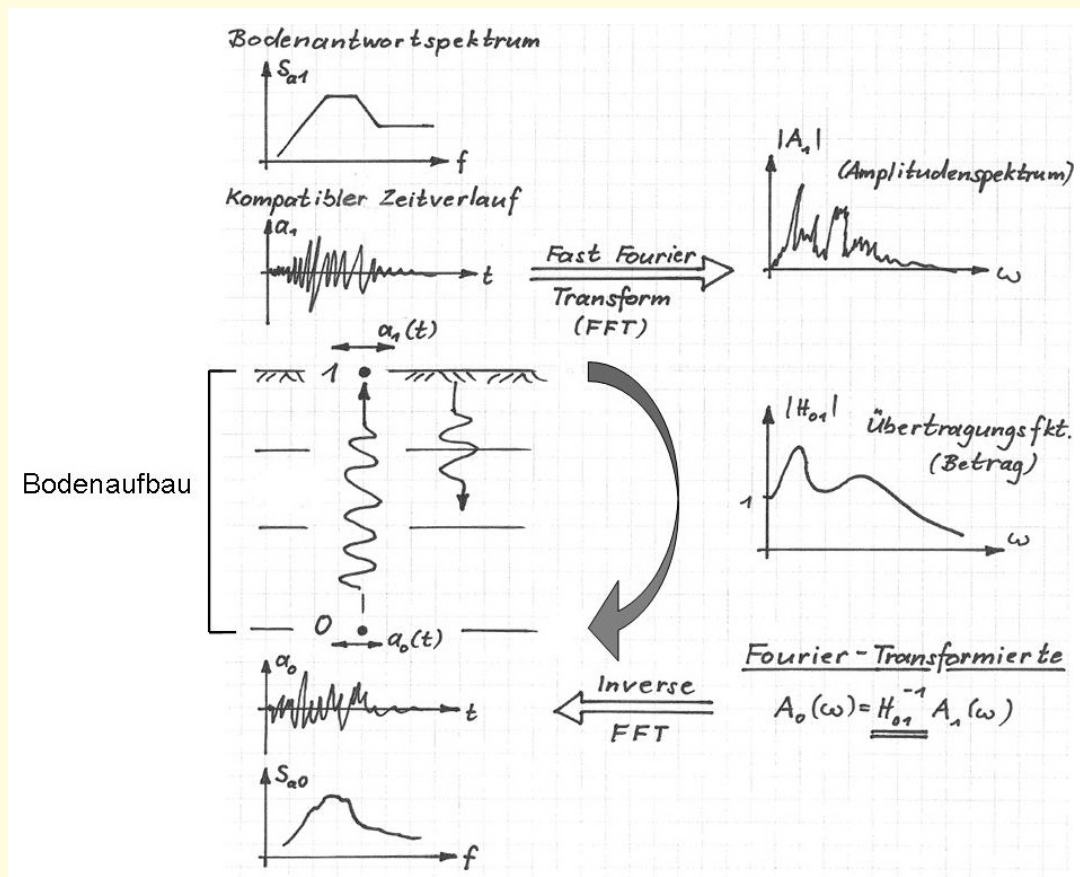 Bodenantwortspektrum
Sa1
f
Kompatibler Zeitverlauf
a1
t
Fast Fourier
Transform
(FFT)
|A1|
(Amplitudenspektrum)
ω
a1(t)
1
Bodenaufbau
|H01|
Übertragungsfkt.
(Betrag)
1
ω
0
a0(t)
a0
t
Inverse
FFT
Fourier-Transformierte
A0(ω)=H01⁻¹ A1(ω)
Sa0
f